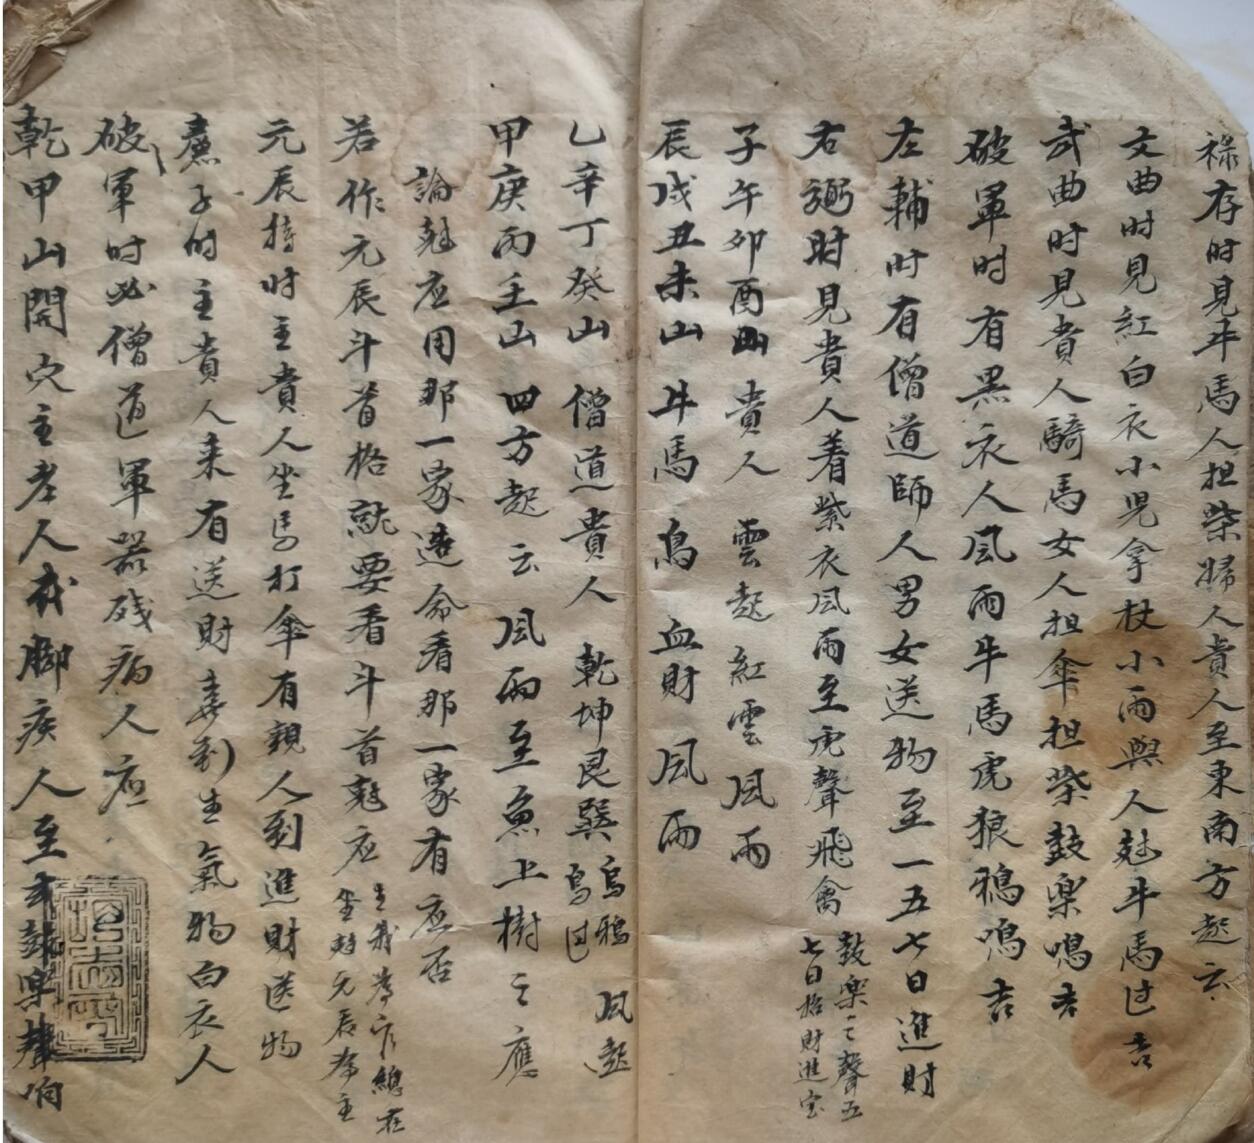 祿存时見牛馬人担柴婦人貴人至東南方起云
文曲时見紅白衣小児拿杖小雨與人尅牛馬过吉
武曲时見貴人騎馬女人担傘担柴鼓樂鳴吉
破軍时有黑衣人風雨牛馬虎狼鴉鳴吉
左輔时有僧道師人男女送物至一五七日進財
右弼时見貴人着紫衣风雨至虎聲飛禽
鼓樂之聲五
七日招財進宝
子午卯酉山貴人 雲起紅雲风雨
辰戌丑未山牛馬 鳥血財风雨
乙辛丁癸山 僧道貴人 乾坤艮巽
烏鴉 风起
鳥过
甲庚丙壬山 四方起云 风雨至魚上樹之應
論尅应用那一家造命看那一家有应否
若作元辰斗首格就要看斗首尅应
元辰
元辰持时主貴人坐马打傘有親人到進財送物
廉子时主貴人来有送財喜到生氣物白衣人
破軍时必僧道軍器残病人应
乾甲山開穴主老人脚疾人至鼓樂聲响